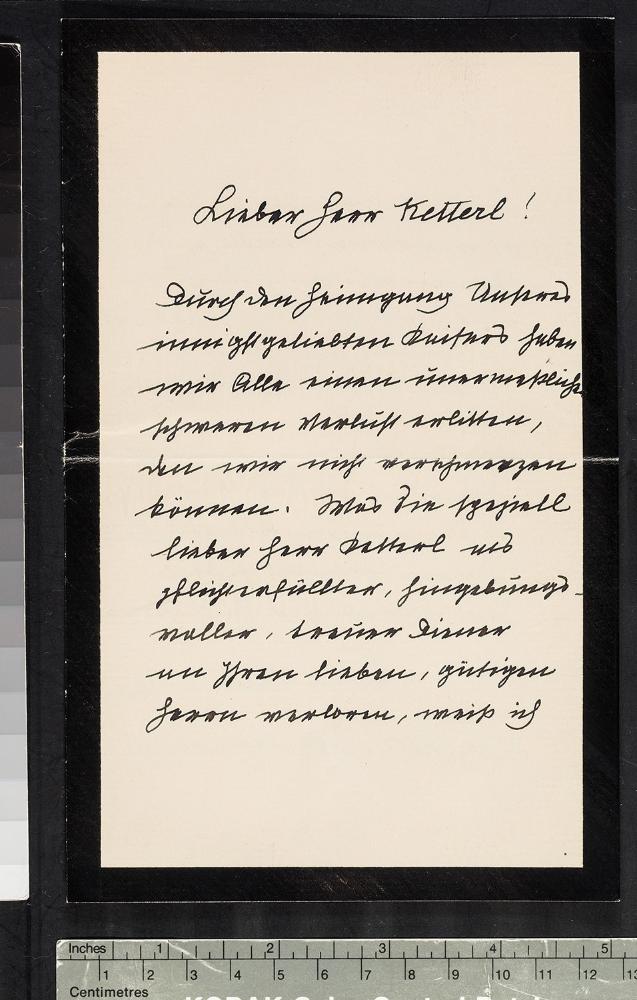 Lieber Herr Ketterl!
Durch den Heimgang Unseres
innigstgeliebten Kaisers haben
wir Alle einen unermeßlich
schweren Verlust erlitten,
den wir nicht verschmerzen
können. Was Sie speziell
lieber Herr Ketterl als
pflichterfüllter, hingebungs-
voller, treuer Diener
an Ihren lieben, gütigen
Herrn verloren, weiß ich
Inches 1 2 3 4 5
1 2 3 4 5 6 7 8 9 10 11 12 13
Centimetres